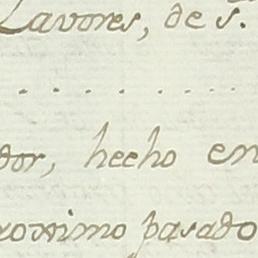 Lavores, de s.
. . . . . . . . .
dor, hecho en
roximo pasado